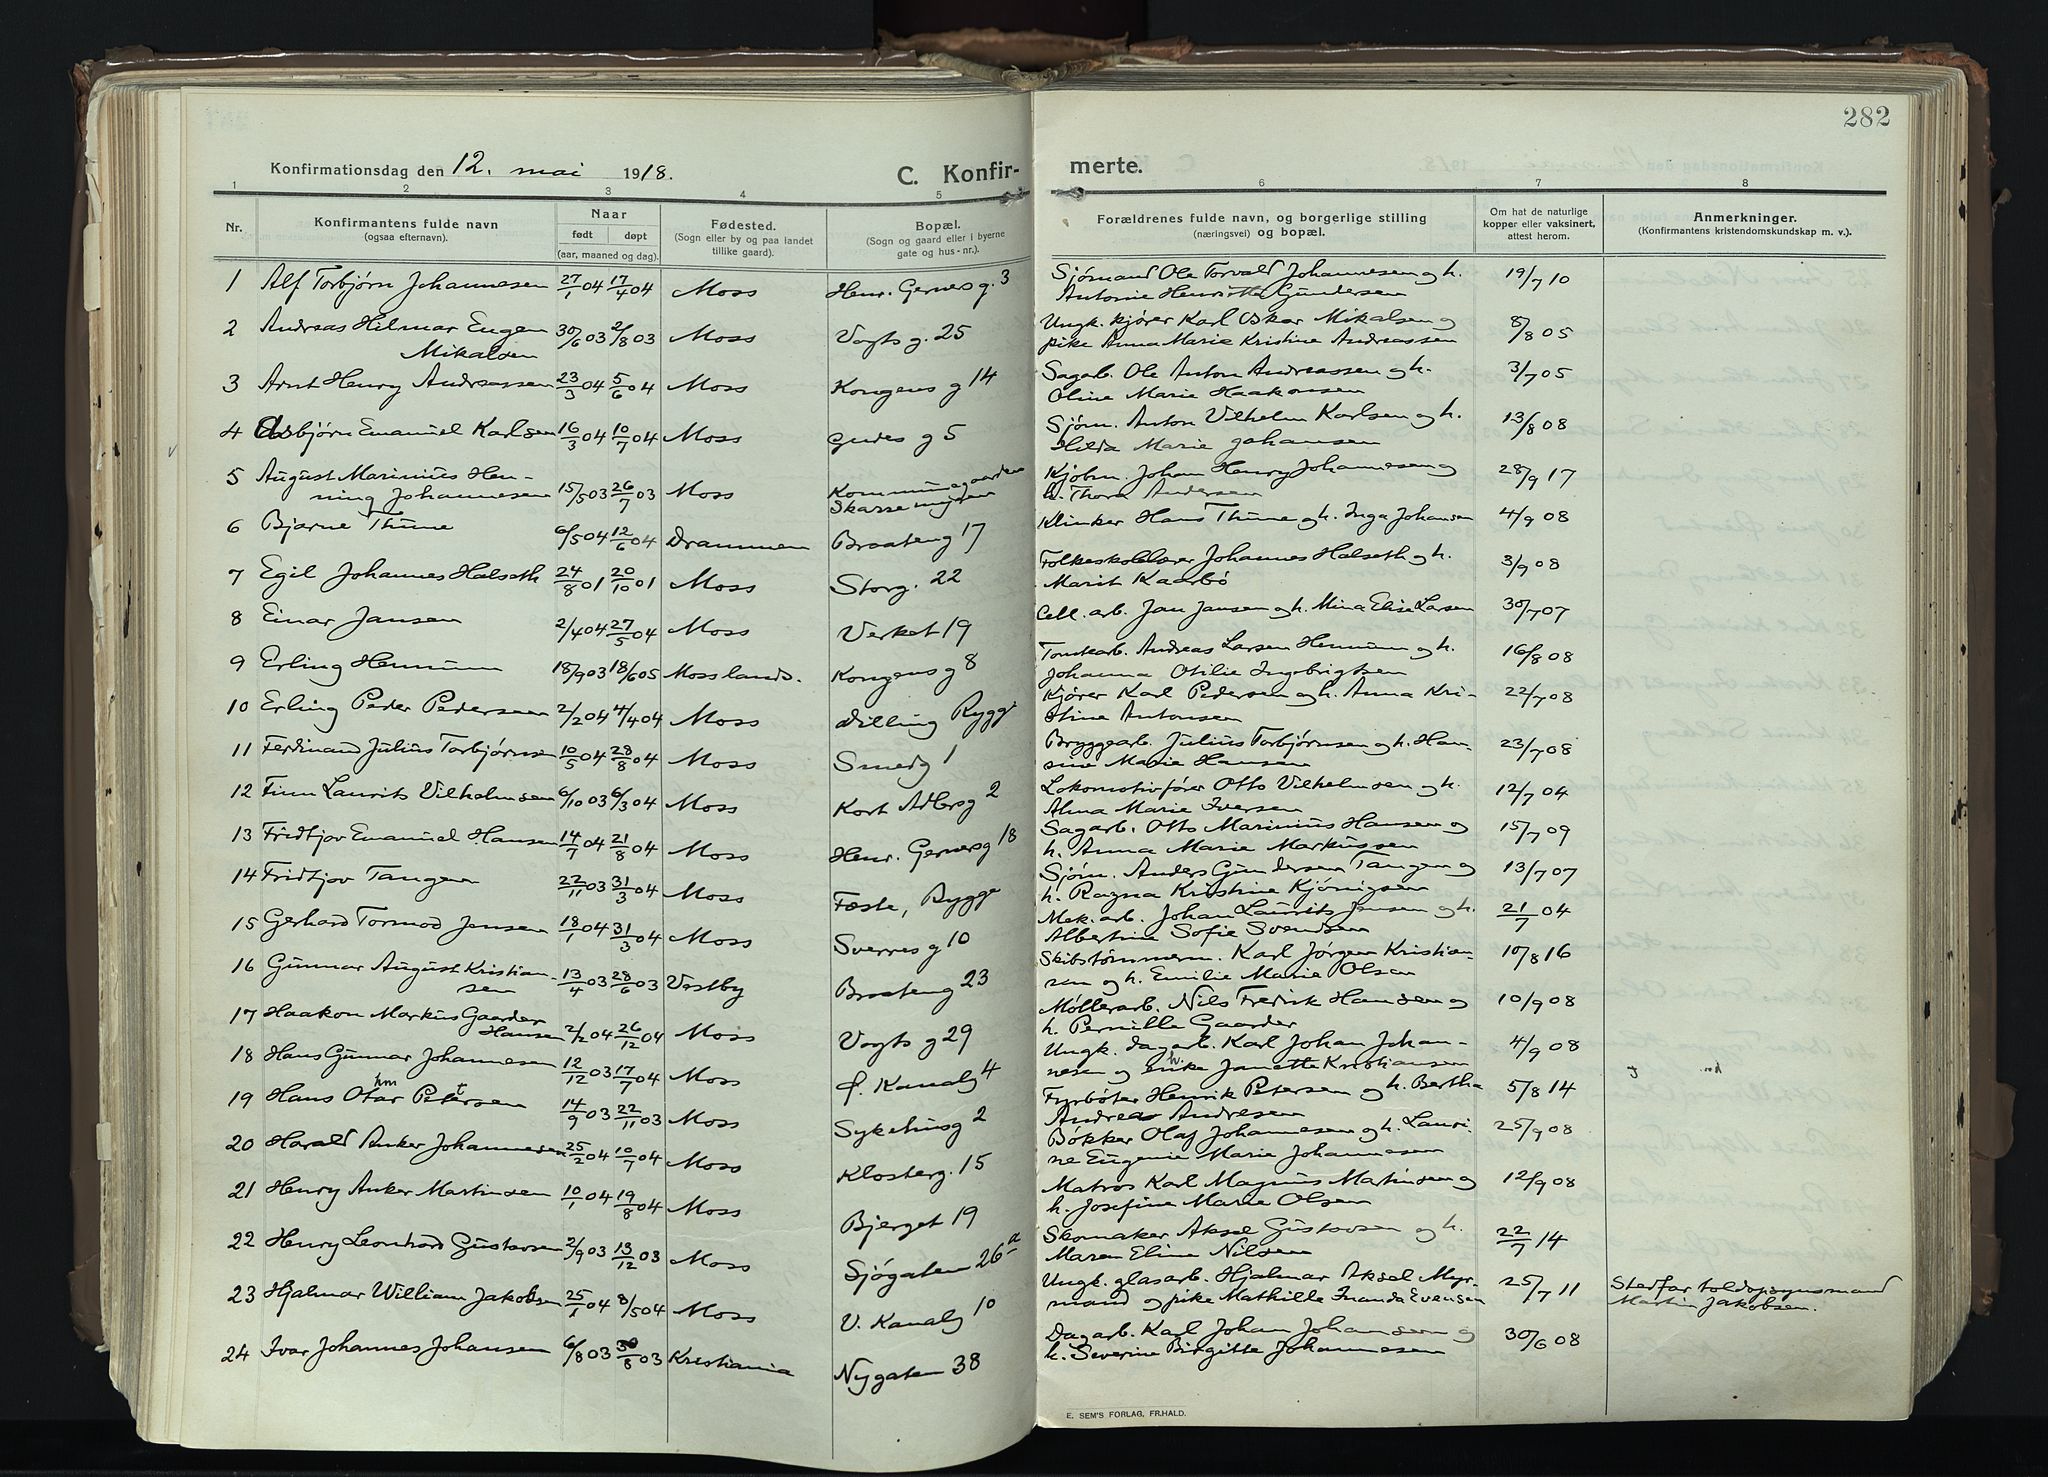 282
Konfirmationsdag den 12. mai 1918.
C. Konfir-
merte.
1 2 3 4 5 6 7 8
Nr.
Konfirmantens fulde navn
(ogsaa efternavn).
Naar
født døpt
(aar, maaned og dag).
Fødested.
(Sogn eller by og paa landet
tillike gaard).
Bopæl.
(Sogn og gaard eller i byerne
gate og hus-nr.).
Forældrenes fulde navn, og borgerlige stilling
(næringsvei) og bopæl.
Om hat de naturlige
kopper eller vaksinert,
attest herom.
Anmerkninger.
(Konfirmantens kristendomskundskap m. v.).
1 Alf Torbjørn Johannesen 27/1 04 17/4 04 Moss Henr. Gernes g. 3 Sjømand Ole Torvald Johannesen og h. 19/7 10
Antonie Henriette Gundersen
2 Andreas Hilmar Eugen 30/6 03 2/8 03 Moss Vogts g. 25 Ungk. kjører Karl Oskar Mikalsen og 8/8 05
Mikalsen pike Anna Marie Kristine Andreassen
3 Arnt Henry Andreassen 23/3 04 5/6 04 Moss Kongens g 14 Sagarb. Ole Anton Andreassen og h. 3/7 05
Oline Marie Haakonsen
4 Asbjørn Emanuel Karlsen 16/3 04 10/7 04 Moss Gudes g 5 Sjøm. Anton Vilhelm Karlsen og h. 13/8 08
Hilda Marie Johansen
5 August Marinius Hen- Kommunegaarden Kjøbm. Johan Henry Johannesen og 28/9 17
ning Johannesen 15/5 03 26/7 03 Moss Skarremyren h. Thora Andersen
6 Bjarne Thune 6/5 04 12/6 04 Drammen Braateng 17 Klinker Hans Thune og h. Inga Johansen 4/9 08
7 Egil Johannes Halseth 24/8 01 20/10 01 Moss Storg. 22 Folkeskolelærer Johannes Halseth og h. 3/9 08
Marit Kaarbø
8 Einar Jansen 2/4 04 27/5 04 Moss Verket 19 Cell. arb. Jan Jansen og h. Mina Elise Larsen 30/7 07
9 Erling Hennum 18/9 03 18/6 05 Moss lands. Kongens g 8 Tomtearb. Andreas Larsen Hennum og h. 16/8 08
Johanna Otilie Ingebrigtsen
10 Erling Peder Pedersen 2/2 04 4/4 04 Moss Dilling Rygge Kjører Karl Pedersen og h. Anna Kri- 22/7 08
stine Antonsen
11 Ferdinand Julius Torbjørnsen 10/5 04 28/8 04 Moss Smedg 1 Bryggearb. Julius Torbjørnsen og h. Han- 23/7 08
sine Marie Hansen
12 Finn Laurits Vilhelmsen 6/10 03 6/3 04 Moss Kort Adlersg 2 Lokomotivfører Otto Vilhelmsen og h. 12/7 04
Alma Marie Iversen
13 Fridtjov Emanuel Hansen 14/7 04 21/8 04 Moss Henr. Gernersg 18 Sagarb. Otto Marinius Hansen og 15/7 09
h. Anna Marie Markussen
14 Fridtjov Tangen 22/11 03 31/3 04 Moss Feste, Rygge Sjøm. Anders Gundersen Tangen og 13/7 07
h. Ragna Kristine Kjønigsen
15 Gerhard Tormod Jensen 18/1 04 31/3 04 Moss Sverres g 10 Mek. arb. Johan Laurits Jensen og h. 21/7 04
Albertine Sofie Svendsen
16 Gunnar August Kristian- 13/4 03 28/6 03 Vestby Braateng 23 Skibstømmerm. Karl Jørgen Kristian- 10/8 16
sen sen og h. Emilie Marie Olsen
17 Haakon Markus Gaarder Møllerarb. Nils Fredrik Hansen og 10/9 08
Hansen 2/2 04 26/12 04 Moss Vogts g 29 h. Pernille Gaarder
18 Hans Gunnar Johannesen 12/12 03 17/7 04 Moss Ø. Kanalg 4 Ungk. dagarb. Karl Johan Johan- 4/9 08
nesen og enke Janette Kristiansen
19 Hans Otar Petersen 14/9 03 22/11 03 Moss Sykehusg 2 Fyrbøter Henrik Petersen og h. Bertha 5/8 14
Andrea Andresen
20 Harald Anker Johannesen 25/2 04 10/7 04 Moss Klosterg. 15 Bøkker Olaf Johannesen og h. Lauri- 25/9 08
ne Eugenie Marie Johannesen
21 Henry Anker Martinsen 10/1 04 19/8 04 Moss Bjerget 19 Matros Karl Magnus Martinsen og 12/9 08
h. Josefine Marie Olsen
22 Henry Leonhard Gustavsen 2/9 03 13/12 03 Moss Sjøgaten 26 a Skomaker Aksel Gustavsen og h. 22/7 14
Maren Eline Nilsen
23 Hjalmar William Jakobsen 25/1 04 8/5 04 Moss V. Kanalg 10 Ungk. glasarb. Hjalmar Aksel Myr- 25/7 11 Stedfar toldopsynsmand
mand og pike Mathilde Evensen Martin Jakobsen.
24 Ivar Johannes Johansen 6/8 03 30/8 03 Kristiania Nygaten 38 Dagarb. Karl Johan Johansen og 30/6 08
h. Severine Birgitte Johannesen
E. SEM'S FORLAG, FR.HALD.